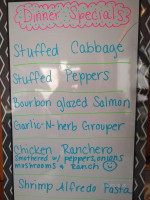 Dinner Specials
Stuffed Cabbage
Stuffed Peppers
Bourbon glazed Salmon
Garlic-N-herb Grouper
Chicken Ranchero
Smothered w/ peppers, onions
mushrooms & Ranch
Shrimp Alfredo Pasta